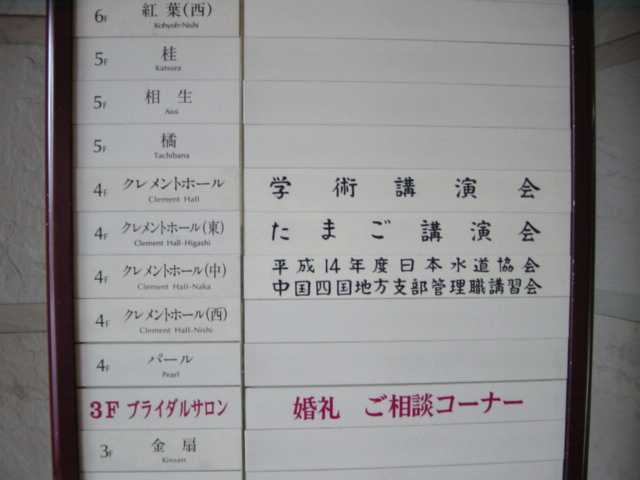 6F 紅葉(西)
Kohyoh-Nishi
5F 桂
Katsura
5F 相生
Aioi
5F 橘
Tachibana
4F クレメントホール 学術講演会
Clement Hall
4F クレメントホール(東) たまご講演会
Clement Hall-Higashi
4F クレメントホール(中) 平成14年度日本水道協会
Clement Hall-Naka 中国四国地方支部管理職講習会
4F クレメントホール(西)
Clement Hall-Nishi
4F パール
Pearl
3F ブライダルサロン 婚礼 ご相談コーナー
3F 金扇
Kinsen